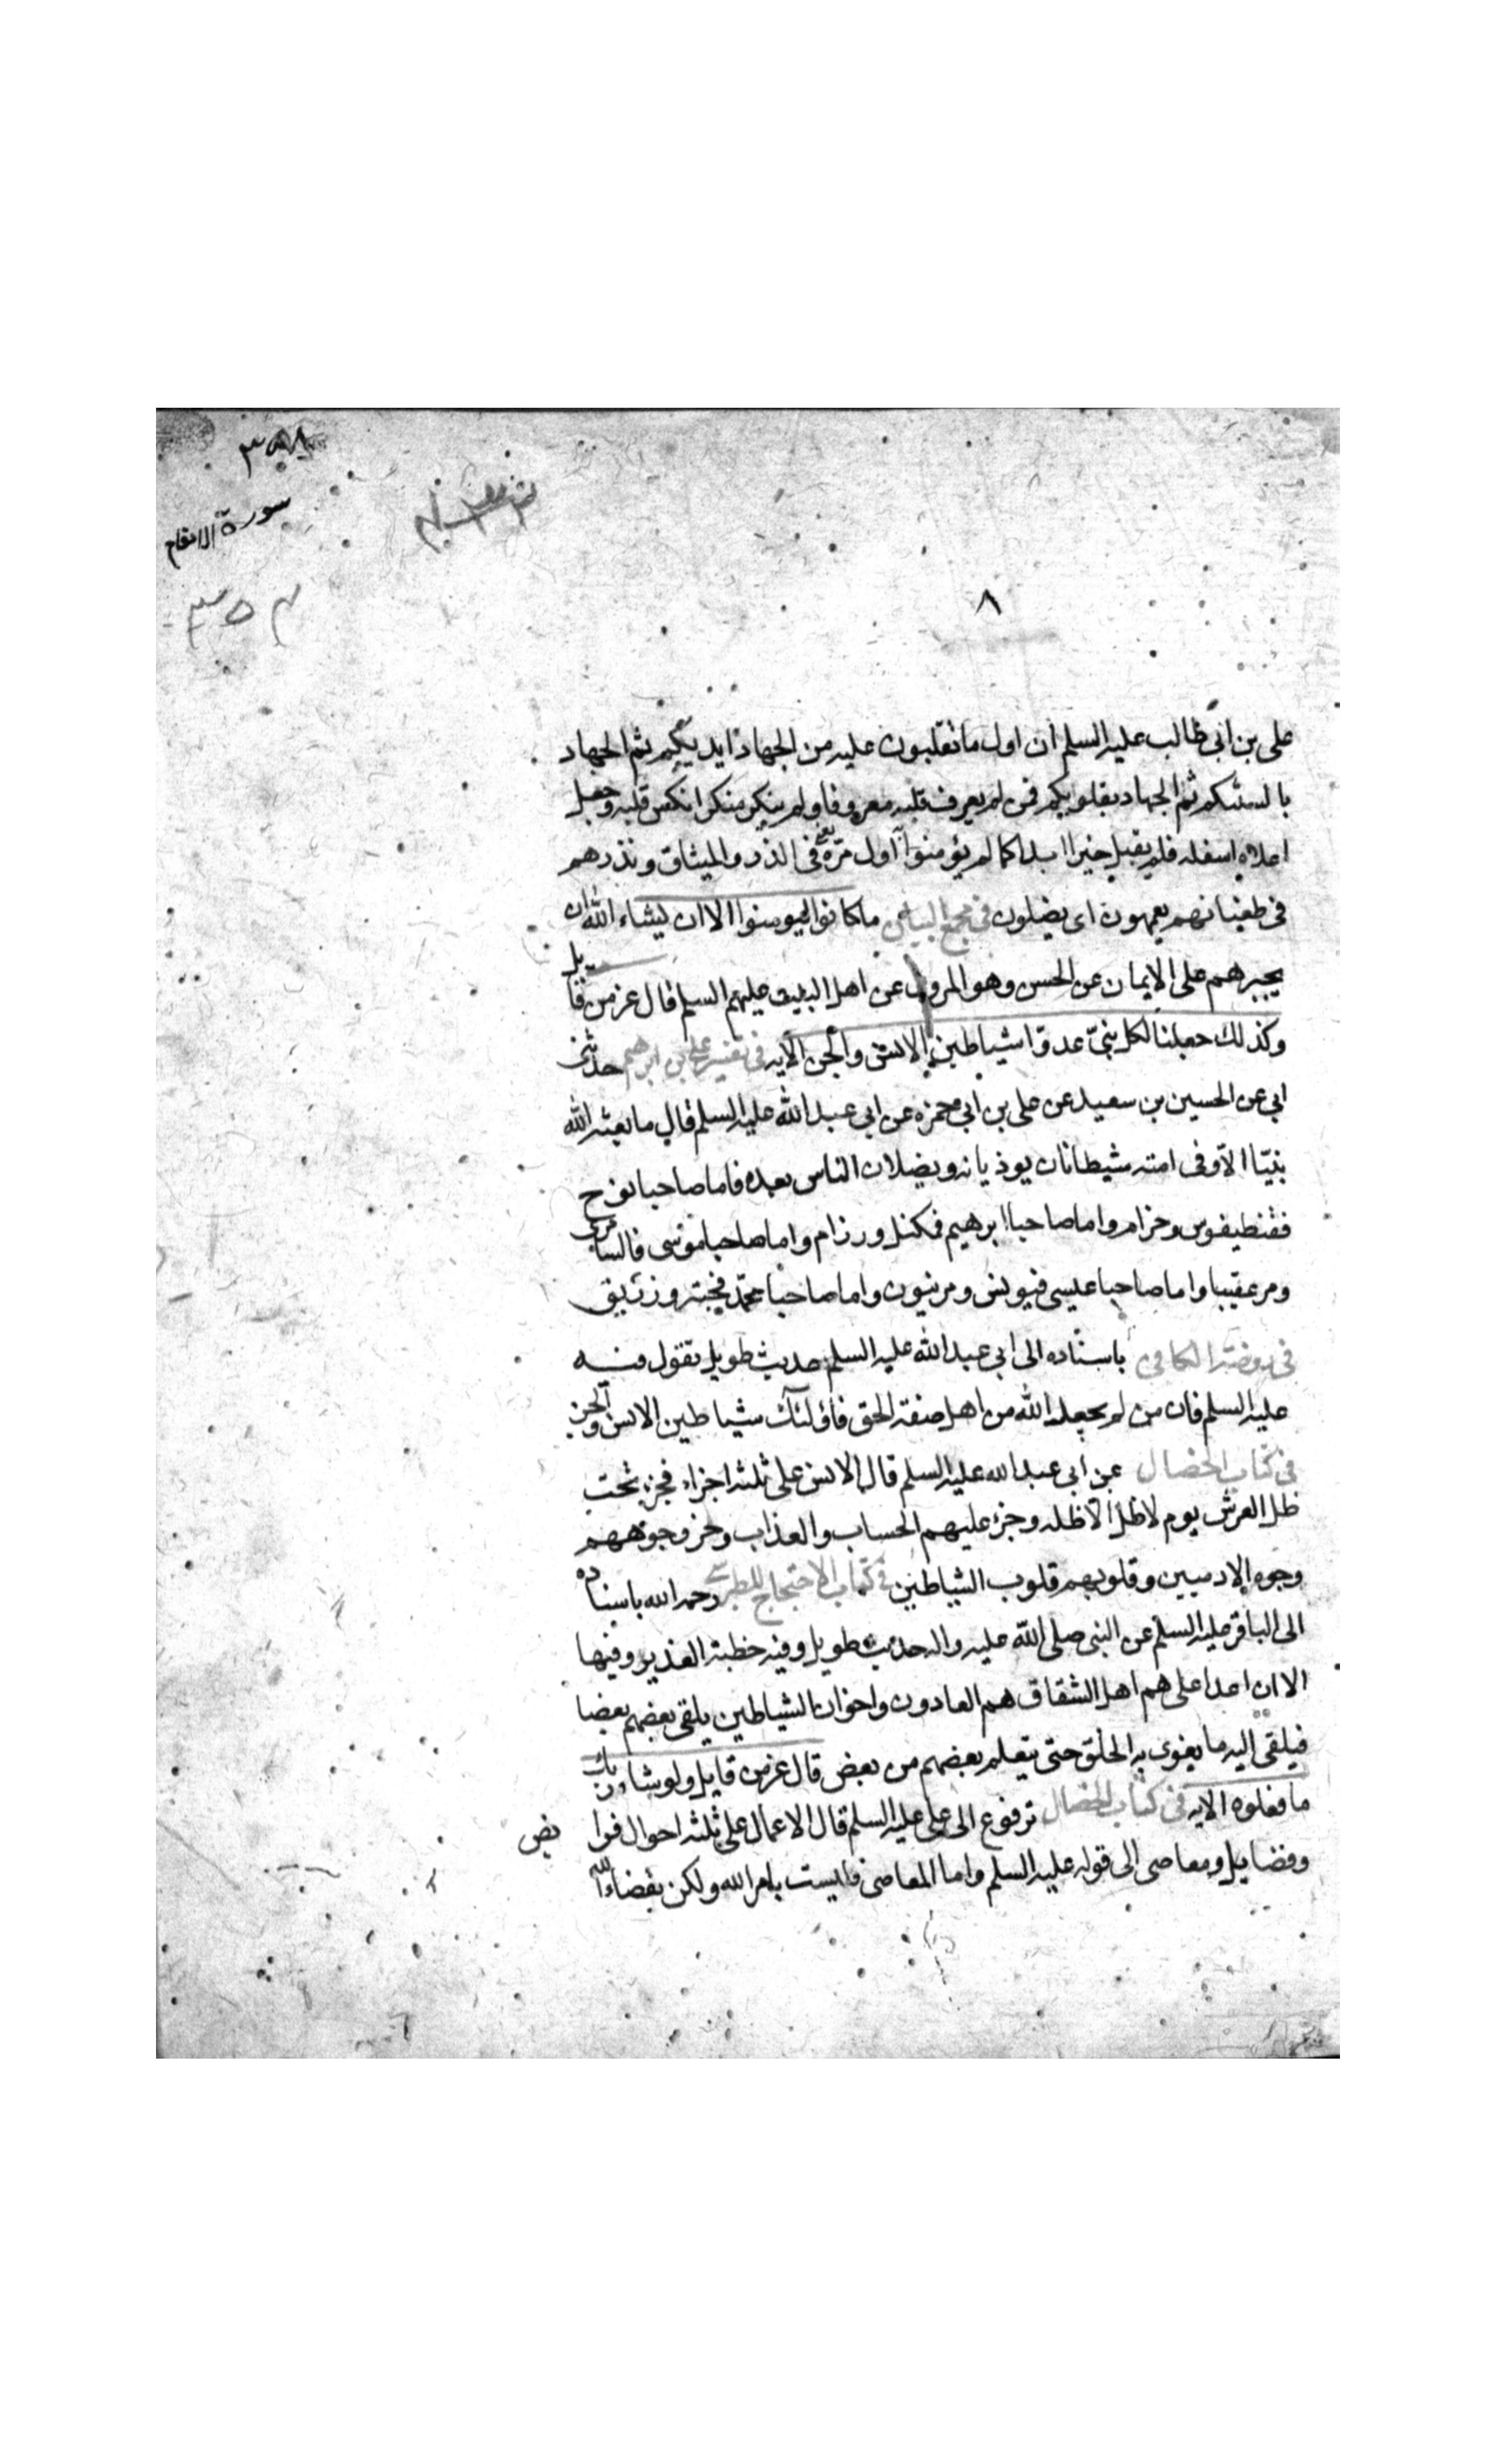 سورة الانعام
٨
على بن ابى طالب عليه السلم ان اول ما تقلبون عليه من الجهاد ايديكم ثم الجهاد
بالسنتكم ثم الجهاد بقلوبكم فمن لم يعرف قلبه معروفا ولم ينكر منكرا انكس قلبه وجعل
اعلاه اسفله فلم يقبل خيرا ابدا كما لم يؤمنوا به اول مرة يعنى فى الذر والميثاق ونذرهم
فى طغيانهم يعمهون اى يضلون فى مجمع البيان ما كانوا ليومنوا الا ان يشاء الله ان
يجبرهم على الايمان عن الحسن وهو المروى عن اهل البيت عليهم السلم قال عز من قايل
وكذلك جعلنا لكل نبى عدوا شياطين الانس والجن الايه فى تفسير على بن ابرهيم حدثنى
ابى عن الحسين بن سعيد عن على بن ابى حمزه عن ابى عبد الله عليه السلم قال ما بعث الله
نبيا الا وفى امته شيطانان يوذيانه ويضلان الناس بعده فاما صاحبا نوح
فقنطيفوس وخرام واما صاحبا ابرهيم فمكثل ورزام واما صاحبا موسى فالسامرى
ومرعقيبا واما صاحبا عيسى فبولس ومرتيون واما صاحبا محمد فحبتر وزريق
فى روضة الكافى باسناده الى ابى عبد الله عليه السلم حديث طويل يقول فيه
عليه السلم فان من لم يجعله الله من اهل صفة الحق فاولئك شياطين الانس والجن
فى كتاب الخصال عن ابى عبد الله عليه السلم قال الانس على ثلثه اجزاء فجزء تحت
ظل العرش يوم لا ظل الا ظله وجزء عليهم الحساب والعذاب وجزء وجوههم
وجوه الادميين وقلوبهم قلوب الشياطين فى كتاب الاحتجاج للطبرسى رحمه الله باسناده
الى الباقر عليه السلم عن النبى صلى الله عليه واله حديث طويل وفيه خطبة الغدير وفيها
الا ان اعدا على هم اهل الشقاق هم العادون واخوان الشياطين يلقى بعضهم بعضا
فيلقى اليه ما يغوى به الخلق حتى يتعلم بعضهم من بعض قال عز من قايل ولو شاء ربك
ما فعلوه الايه فى كتاب الخصال مرفوع الى على عليه السلم قال الاعمال على ثلثه احوال فرايض
وفضايل ومعاصى الى قوله عليه السلم واما المعاصى فليست بامر الله ولكن بقضاء الله